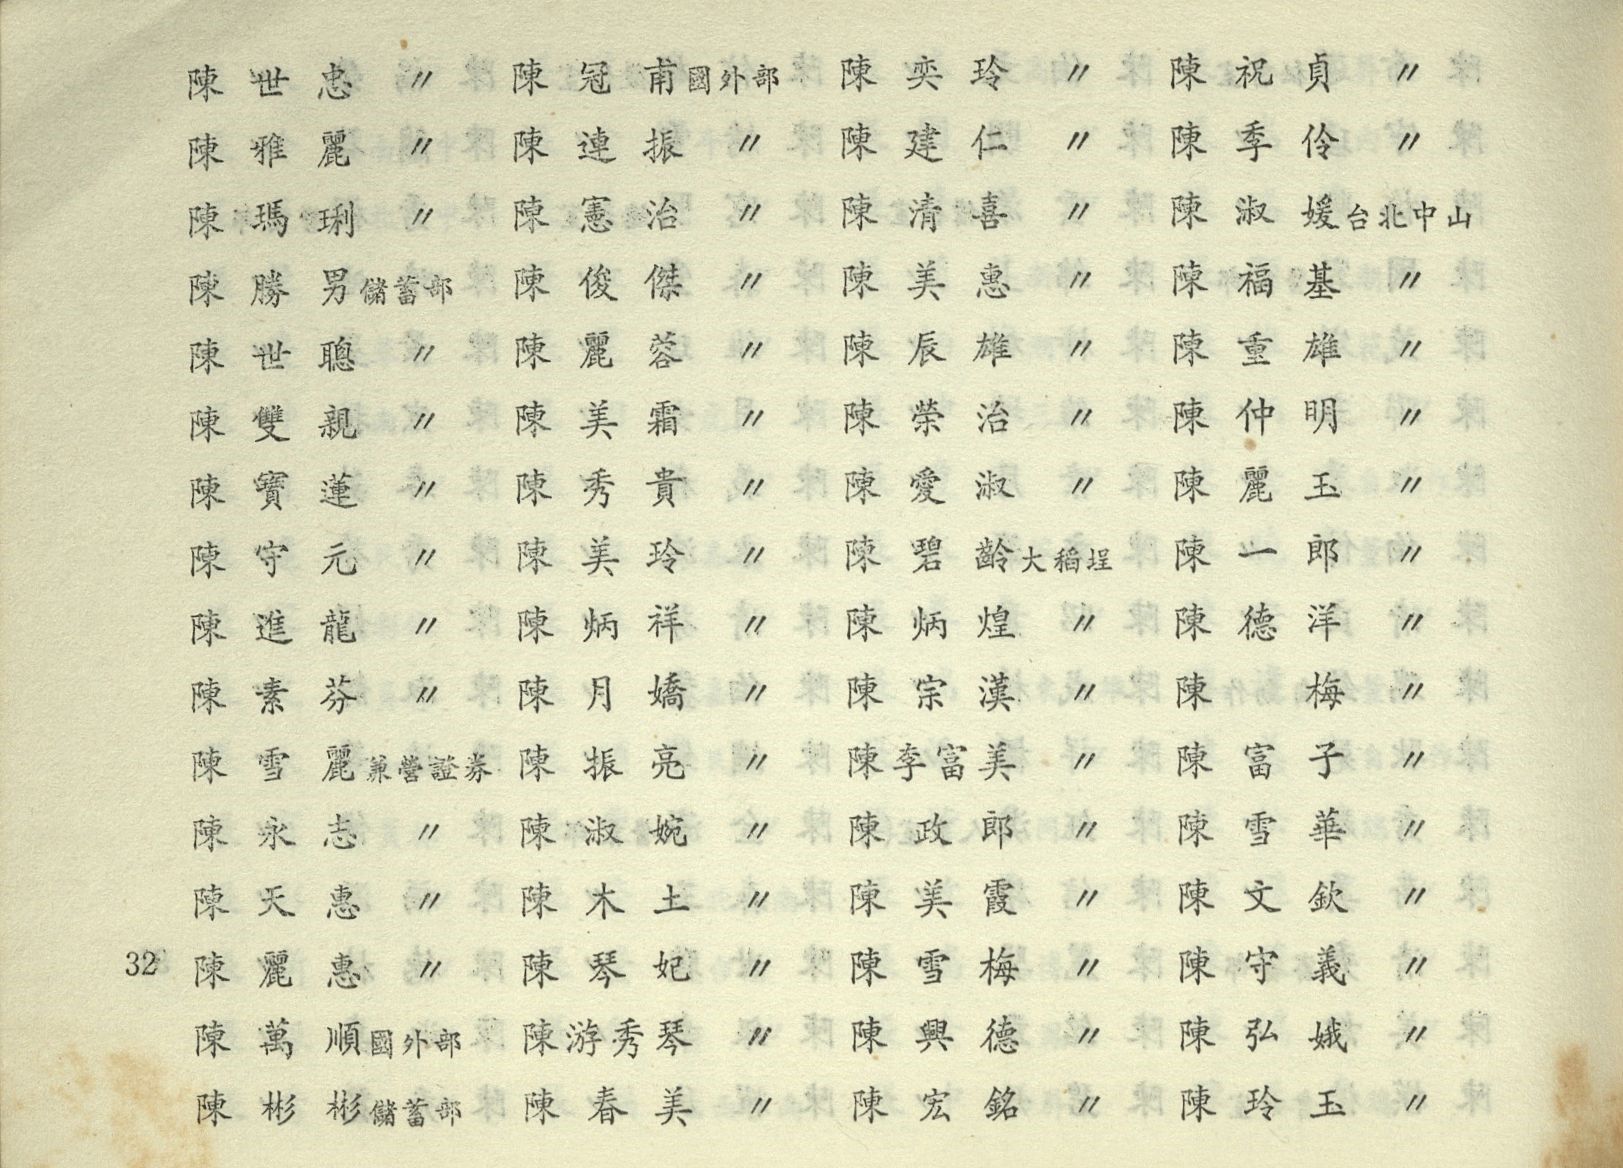 陳世忠 〃 陳冠甫 國外部 陳奕玲 〃 陳祝貞 〃
陳雅麗 〃 陳連振 〃 陳建仁 〃 陳季伶 〃
陳瑪琍 〃 陳憲治 〃 陳清喜 〃 陳淑媛 台北中山
陳勝男 儲蓄部 陳俊傑 〃 陳美惠 〃 陳福基 〃
陳世聰 〃 陳麗蓉 〃 陳辰雄 〃 陳重雄 〃
陳雙親 〃 陳美霜 〃 陳榮治 〃 陳仲明 〃
陳寶蓮 〃 陳秀貴 〃 陳愛淑 〃 陳麗玉 〃
陳守元 〃 陳美玲 〃 陳碧齡 大稻埕 陳一郎 〃
陳進龍 〃 陳炳祥 〃 陳炳煌 〃 陳德洋 〃
陳素芬 〃 陳月嬌 〃 陳宗漢 〃 陳梅 〃
陳雪麗 兼營證券 陳振亮 〃 陳李富美 〃 陳富子 〃
陳永志 〃 陳淑婉 〃 陳政郎 〃 陳雪華 〃
陳天惠 〃 陳木土 〃 陳美霞 〃 陳文欽 〃
32 陳麗惠 〃 陳琴妃 〃 陳雪梅 〃 陳守義 〃
陳萬順 國外部 陳游秀琴 〃 陳興德 〃 陳弘娥 〃
陳彬彬 儲蓄部 陳春美 〃 陳宏銘 〃 陳玲玉 〃